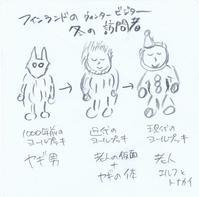 フィンランドの ウィンタービジター
冬の訪問者
1000年前の
ヨールプッキ
ヤギ男
近代の
ヨールプッキ
老人の仮面
+
ヤギの体
現代の
ヨールプッキ
老人
エルフと
トナカイ